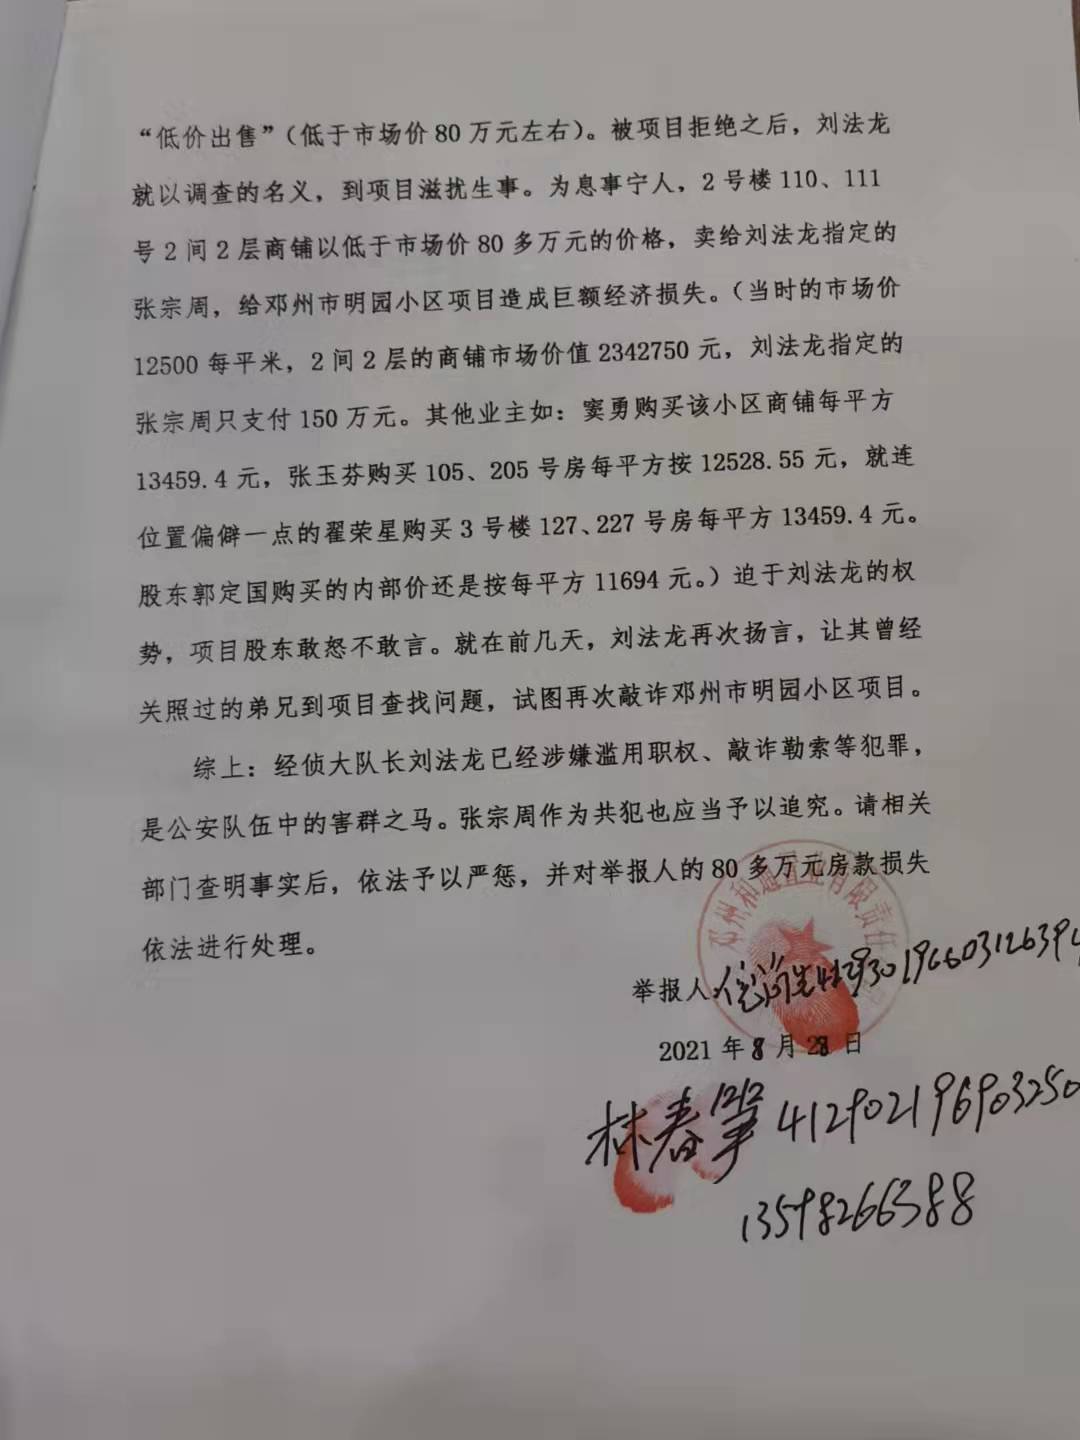 “低价出售”（低于市场价80万元左右）。被项目拒绝之后，刘法龙
就以调查的名义，到项目滋扰生事。为息事宁人，2号楼110、111
号2间2层商铺以低于市场价80多万元的价格，卖给刘法龙指定的
张宗周，给邓州市明园小区项目造成巨额经济损失。（当时的市场价
12500每平米，2间2层的商铺市场价值2342750元，刘法龙指定的
张宗周只支付150万元。其他业主如：窦勇购买该小区商铺每平方
13459.4元，张玉芬购买105、205号房每平方按12528.55元，就连
位置偏僻一点的翟荣星购买3号楼127、227号房每平方13459.4元。
股东郭定国购买的内部价还是按每平方11694元。）迫于刘法龙的权
势，项目股东敢怒不敢言。就在前几天，刘法龙再次扬言，让其曾经
关照过的弟兄到项目查找问题，试图再次敲诈邓州市明园小区项目。
综上：经侦大队长刘法龙已经涉嫌滥用职权、敲诈勒索等犯罪，
是公安队伍中的害群之马。张宗周作为共犯也应当予以追究。请相关
部门查明事实后，依法予以严惩，并对举报人的80多万元房款损失
依法进行处理。
邓州和通置业有限责任
举报人 412930196603126394
2021年8月28日
林春 412902196903250
13598266388